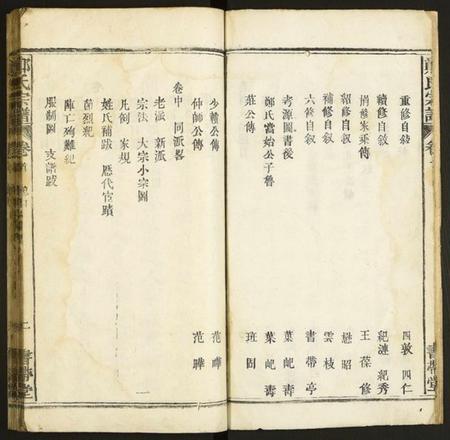 鄭氏宗譜
重修自敘 四敦 四仁
續修自敘 紀漣 紀秀
王葆修
紹修自敘 懋昭
補修自敘 雲枝
六修自敘 書帶亭
考源圖書後 葉屺壽
鄭氏當始公子魯 葉屺壽
莊公傳 班固
書帶堂
少贛公傳 范曄
仲師公傳 范曄
卷中 同派畧
老派 新派
宗法 大宗小宗圖
凡例 家規
姓氏補跋 歷代宦蹟
節烈紀
陣亡殉難紀
服制圖 支譜跋
鄭氏宗譜
書帶堂